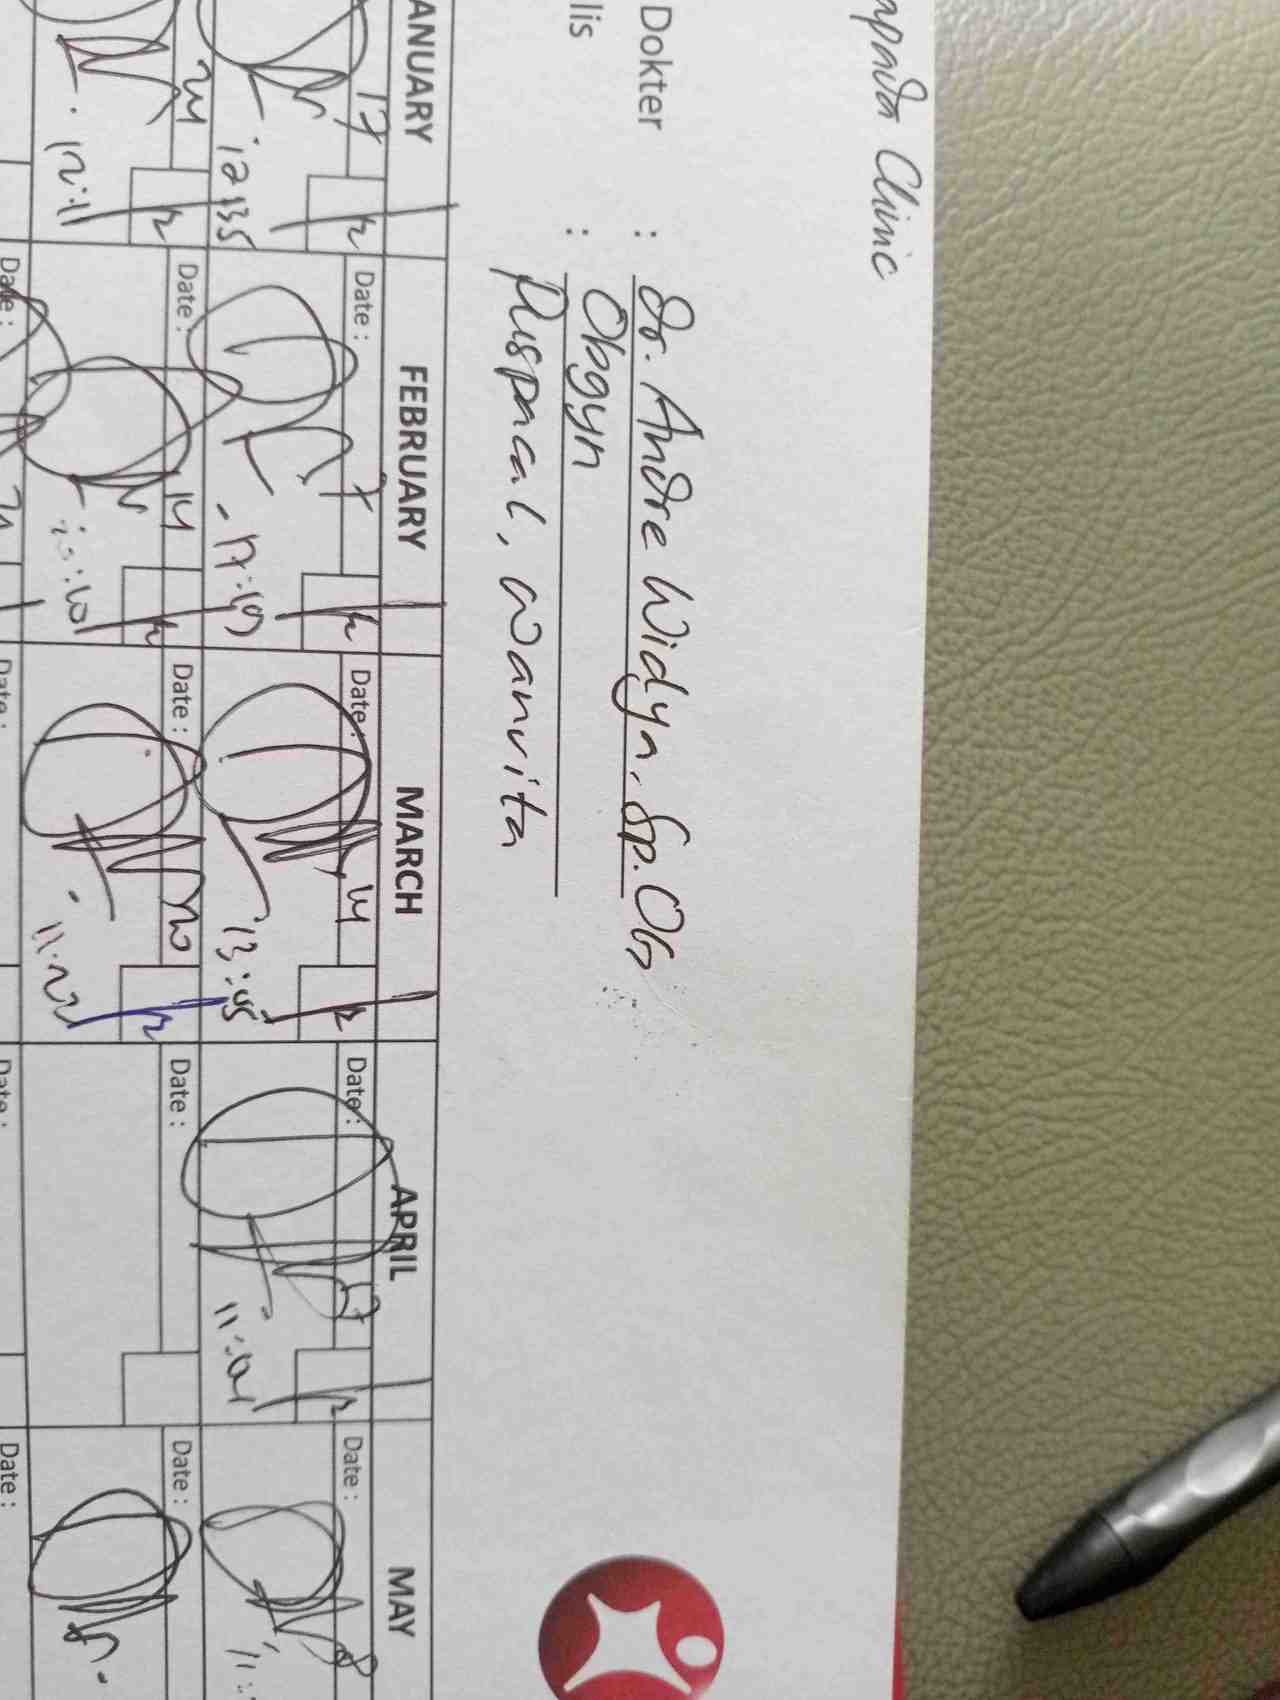 mpada Clinic
Dokter : dr. Andre Widya, Sp.OG
lis : Obgyn
Puspacal, Wanvita
ANUARY FEBRUARY MARCH APRIL MAY
17 Date : 7 Date : 14 Date : 17 Date : 8
12:35 17:19 13:45 11:01 11:
24 Date : 14 Date : 20 Date : Date :
12:11 11:22
Date : 21 Date : Date : Date :